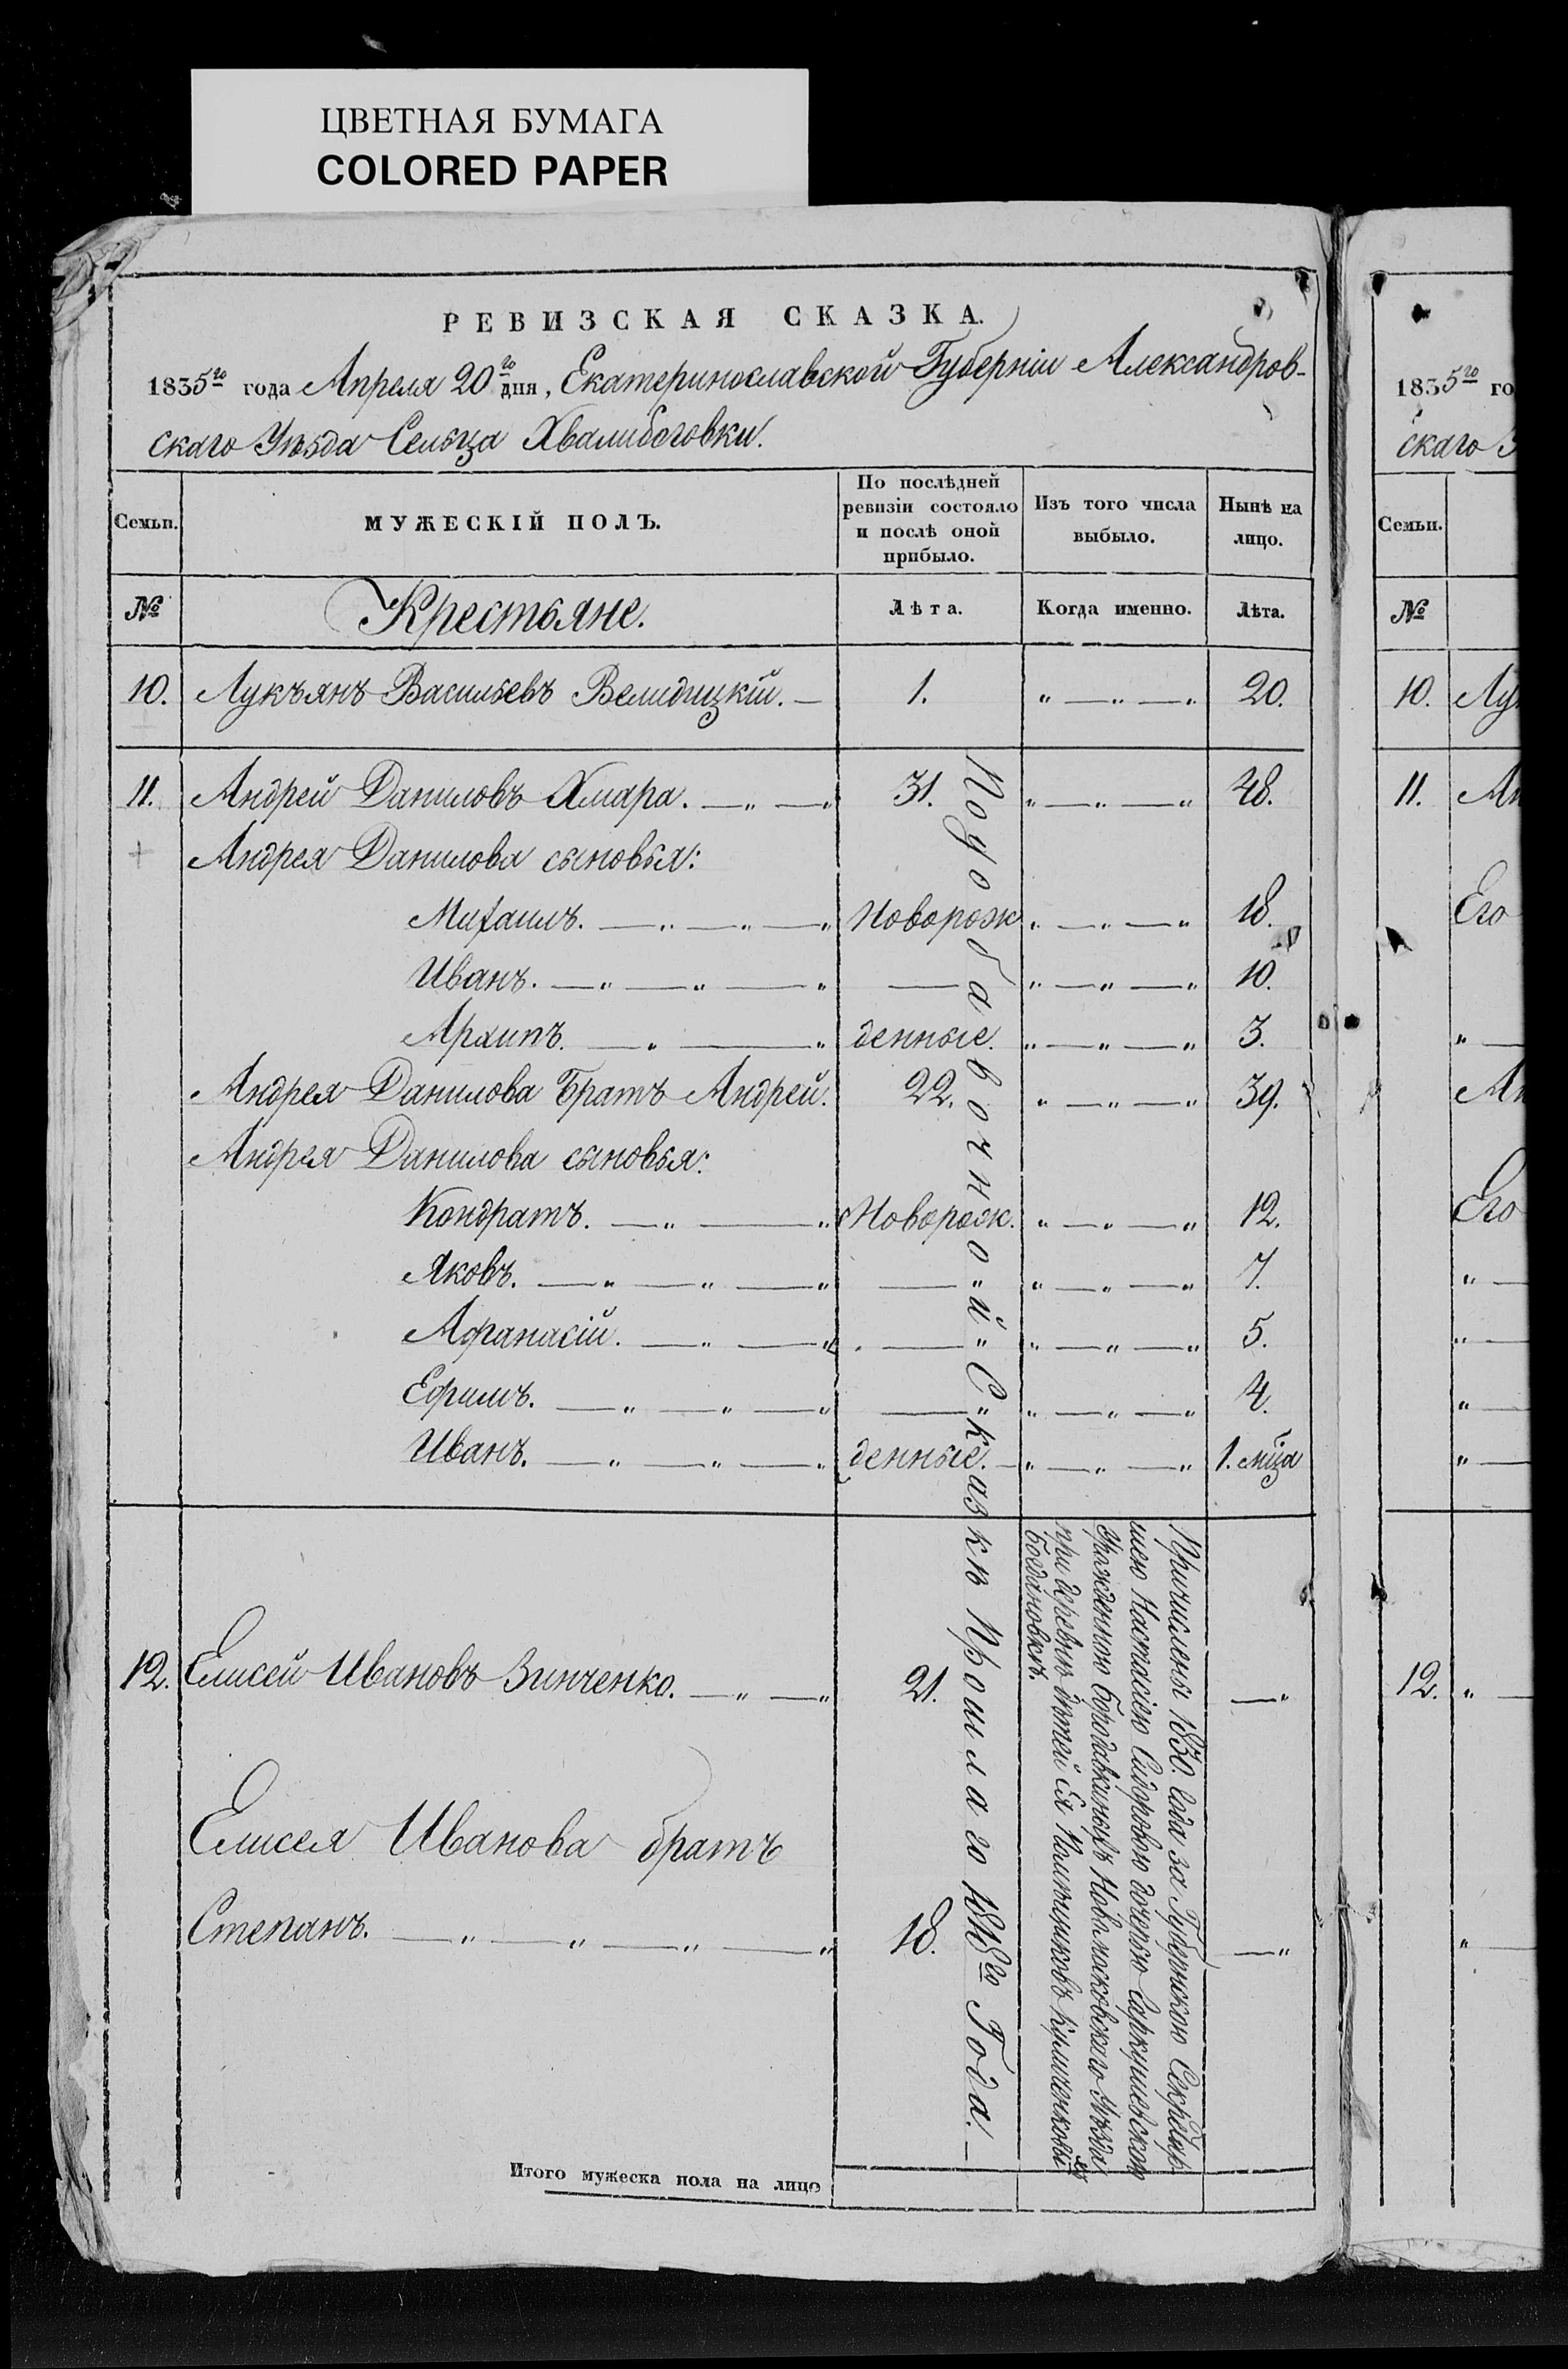 ЦВЕТНАЯ БУМАГА
COLORED PAPER
РЕВИЗСКАЯ СКАЗКА.
1835го года Апреля 20го дня, Екатеринославской Губерніи Александров-
скаго Уѣзда Сельца Хвалибоговки.
Семьи.
МУЖЕСКІЙ ПОЛЪ.
По послѣдней ревизіи состояло и послѣ оной прибыло.
Изъ того числа выбыло.
Нынѣ на лицо.
№ Крестьяне. Лѣта. Когда именно. Лѣта.
10. Лукъянъ Васильевъ Велидицкій. — 1. " — " — " 20.
11. Андрей Даниловъ Хмара. — " — " 31. " — " — " 48.
Андрея Данилова сыновья:
Михаилъ. — " — " — " Новорож " — " — " 18.
Иванъ. — " — " — " — " — " — " 10.
Архипъ. — " — " денные. " — " — " 3.
Андрея Данилова Братъ Андрей. 22. " — " — " 39.
Андрея Данилова сыновья:
Кондратъ. — " — " Новорож. " — " — " 12.
Яковъ. — " — " — " — " " — " — " 7.
Афанасій. — " — " — " " — " — " 5.
Ефимъ. — " — " — " — " " — " — " 4.
Иванъ. — " — " — " денные. — " — " — " 1. мца
12. Елисей Ивановъ Зинченко. — " — " 21. — "
Елисея Иванова братъ
Степанъ. — " — " — " — " 18. — "
Подобавочной Сказкѣ Прошлаго 1818го Года. —
Причислены 1830. Года за Губернскою Секретар
шею Настасіею Сидоровою дочерью
Урожденною Новомосковскаго Уѣзда
при деревнѣ дѣтей Ея Помѣщиковъ
Богдановкѣ.
Итого мужеска пола на лицо
1835го го
скаго
Семьи.
№
10. Лу
11. Ан
Его
"
Ан
Его
"
"
"
"
12. "
"